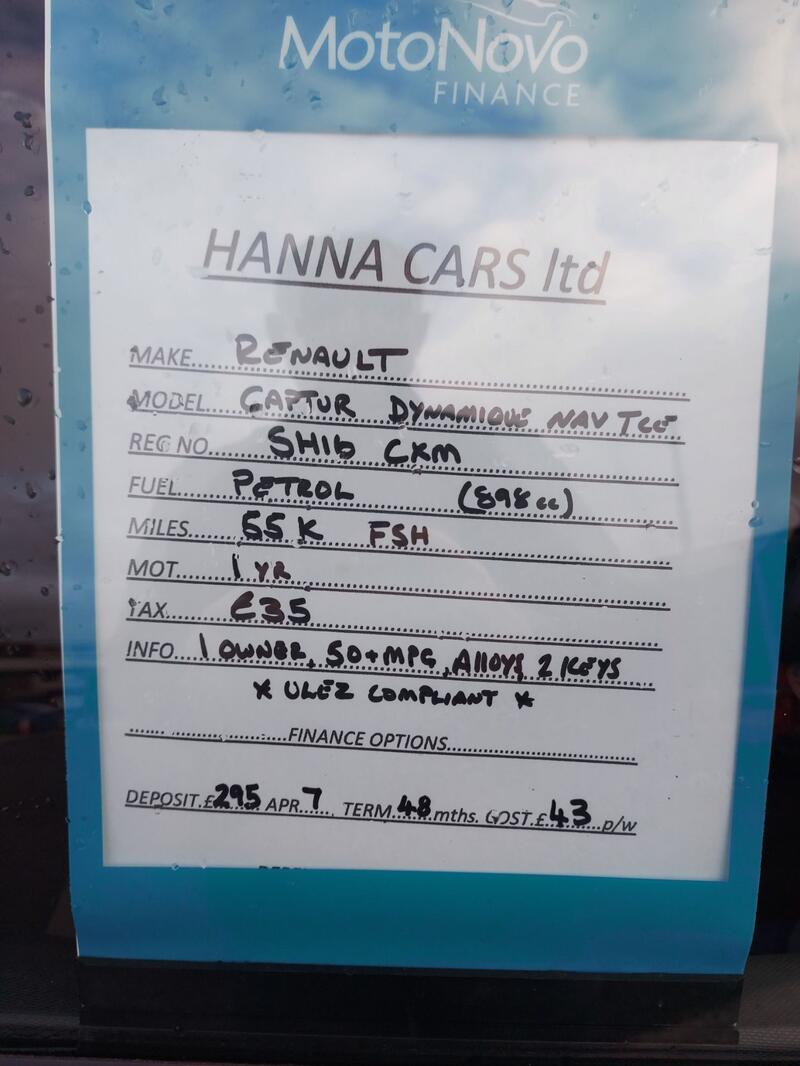 MotoNovo
FINANCE
HANNA CARS ltd
MAKE..... RENAULT
MODEL... CAPTUR DYNAMIQUE NAV TCE
REG NO... SH16 CXM
FUEL..... PETROL (898cc)
MILES.... 55K FSH
MOT..... 1 YR
TAX..... £35
INFO.... 1 OWNER, 50+MPG, AllOYS, 2 KEYS
* ULEZ COMPLIANT *
FINANCE OPTIONS
DEPOSIT.£295 APR 7 TERM 48 mths. COST.£43 p/w